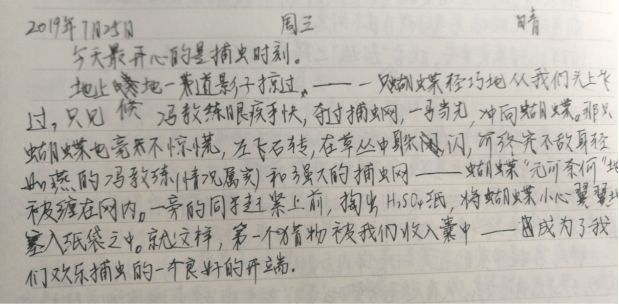 2019年7月25日 周三 晴
今天最开心的是捕虫时刻。
地上倏地一道影子掠过，——一只蝴蝶轻巧地从我们头上飞
过，只见 冯教练眼疾手快，夺过捕虫网，一马当先，冲向蝴蝶。那只
蝴蝶也毫不惊慌，左飞右转，在草丛中躲闪，可终究不敌身轻
如燕的冯教练(情况属实)和强大的捕虫网——蝴蝶“无可奈何”地
被缠在网内。一旁的同学赶紧上前，掏出H₂SO₄纸，将蝴蝶小心翼翼地
塞入纸袋之中。就这样，第一个猎物被我们收入囊中——成为了我
们欢乐捕虫的一个良好的开端.